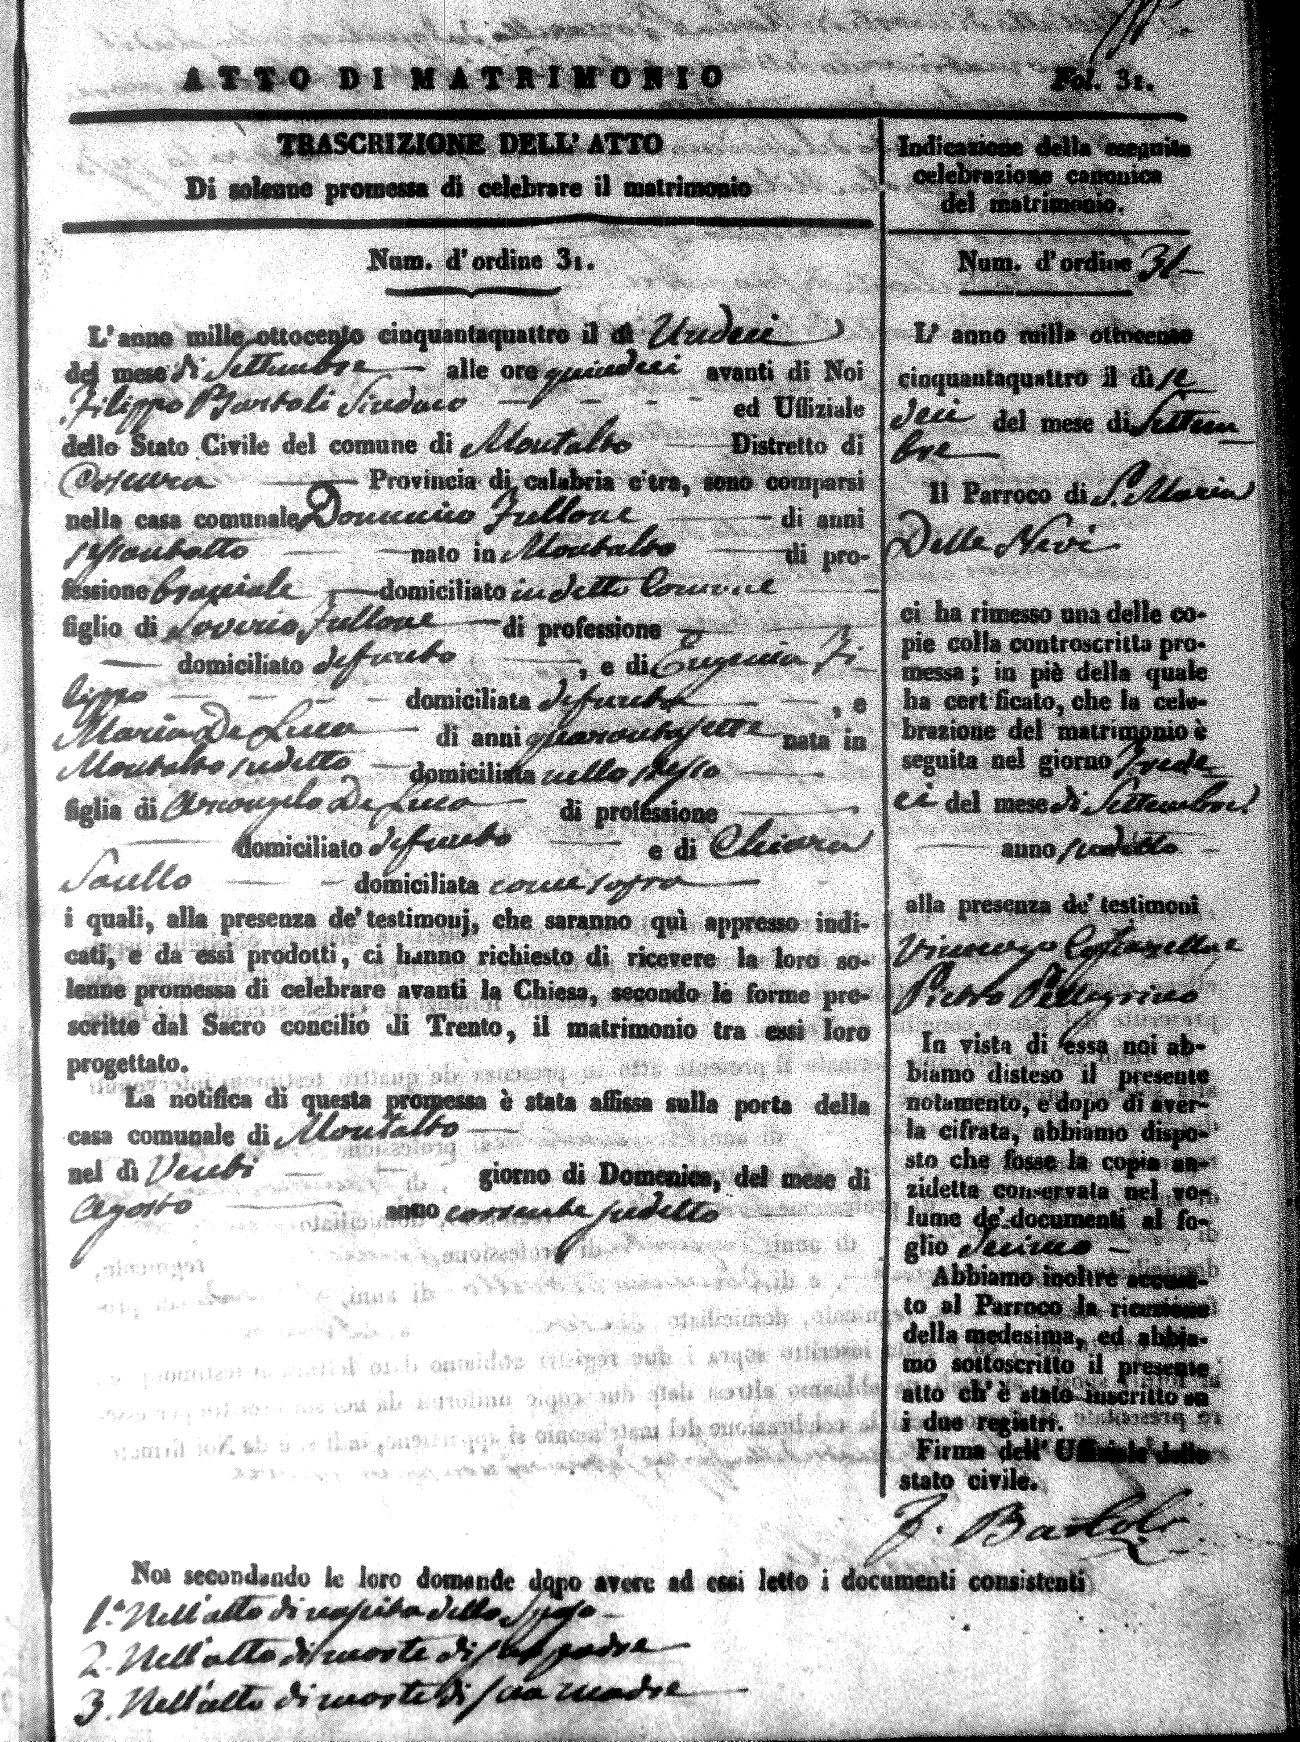 ATTO DI MATRIMONIO
Fol. 31.
TRASCRIZIONE DELL' ATTO
Di solenne promessa di celebrare il matrimonio
Num. d'ordine 31.
L'anno mille ottocento cinquantaquattro il dì Undeci
del mese di Settembre alle ore quindeci avanti di Noi
Filippo Bartoli Sindaco ed Uffiziale
dello Stato Civile del comune di Montalto Distretto di
Cosenza Provincia di calabria citra, sono comparsi
nella casa comunale Domenico Fullone di anni
sessantotto nato in Montalto di pro-
fessione bracciale domiciliato in detto Comune
figlio di Saverio Fullone di professione
domiciliato defunto, e di Eugenia Fi
lippo domiciliata defunta, e
Maria De Luca di anni quarantasette nata in
Montalto sudetto domiciliata nello stesso
figlia di Arcangelo De Luca di professione
domiciliato defunto e di Chiara
Saullo domiciliata come sopra
i quali, alla presenza de' testimonj, che saranno quì appresso indi-
cati, e da essi prodotti, ci hanno richiesto di ricevere la loro so-
lenne promessa di celebrare avanti la Chiesa, secondo le forme pre-
scritte dal Sacro concilio di Trento, il matrimonio tra essi loro
progettato.
La notifica di questa promessa è stata affissa sulla porta della
casa comunale di Montalto
nel dì Venti giorno di Domenica, del mese di
Agosto anno corrente sudetto
Indicazione della eseguita
celebrazione canonica
del matrimonio.
Num. d'ordine 31
L' anno mille ottocento
cinquantaquattro il dì se
deci del mese di Settem
bre
Il Parroco di S. Maria
Delle Nevi
ci ha rimesso una delle co-
pie colla controscritta pro-
messa; in piè della quale
ha certificato, che la cele-
brazione del matrimonio è
seguita nel giorno Trede
ci del mese di Settembre
anno sudetto
alla presenza de' testimoni
Vincenzo
Pietro Pellegrino
In vista di essa noi ab-
biamo disteso il presente
notamento, e dopo di aver-
la cifrata, abbiamo dispo-
sto che fosse la copia an-
zidetta conservata nel vo-
lume de' documenti al fo-
glio
Abbiamo inoltre accusa-
to al Parroco la ricezione
della medesima, ed abbia-
mo sottoscritto il presente
atto ch' è stato inscritto su
i due registri.
Firma dell' Uffiziale dello
stato civile.
F. Bartoli
Noi secondando le loro domande dopo avere ad essi letto i documenti consistenti
1.° Nell'atto di nascita dello Sposo
2. Nell'atto di morte di suo padre
3. Nell'atto di morte di sua madre